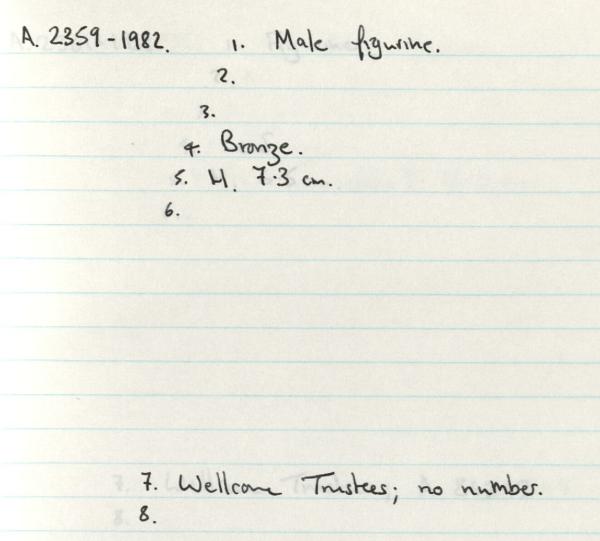 A. 2359-1982. 1. Male figurine.
2.
3.
4. Bronze.
5. H. 7.3 cm.
6.
7. Wellcome Trustees; no number.
8.